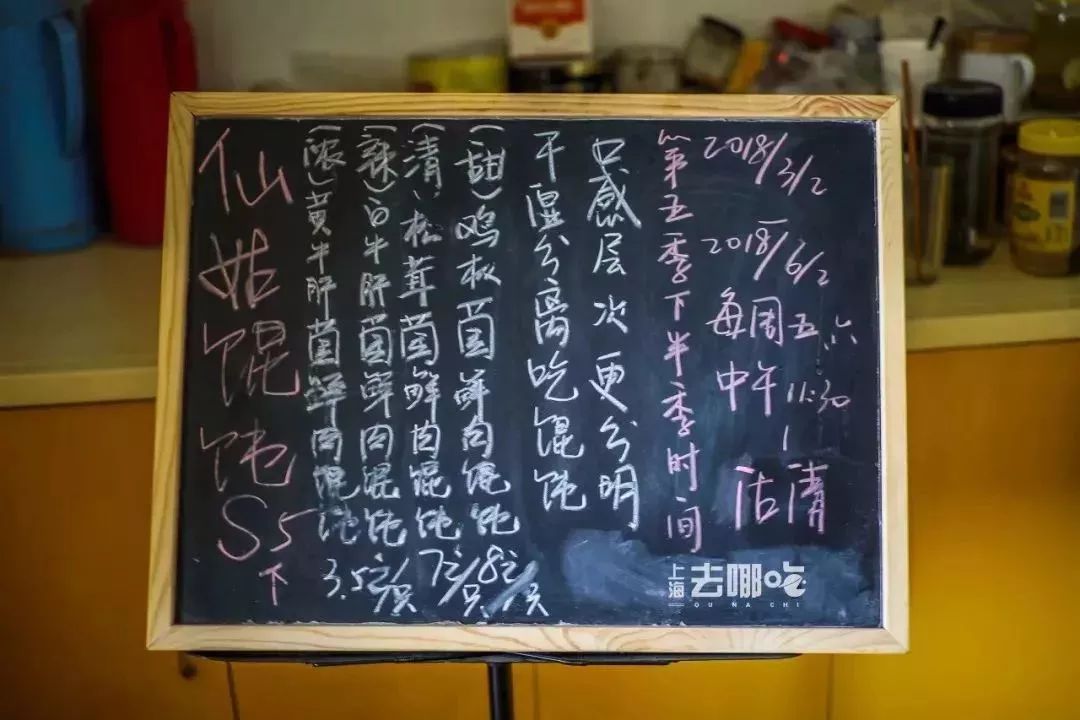 仙姑馄饨S5下
(浓)黄牛肝菌鲜肉馄饨
(辣)白牛肝菌鲜肉馄饨
3.5元/只
(清)松茸菌鲜肉馄饨
7元/只
(甜)鸡枞菌鲜肉馄饨
8元/只
干湿分离吃馄饨
口感层次更分明
第五季下半季时间
2018/3/2
2018/6/2
每周五、六
中午11:30
沽清
上海去哪吃
QU NA CHI